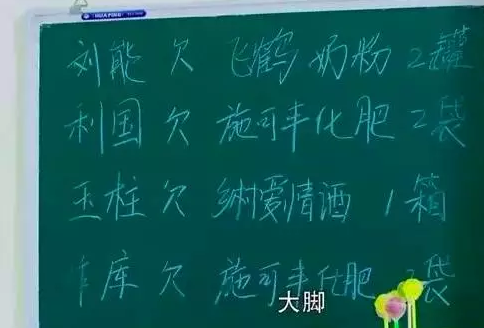 刘能 欠 飞鹤 奶粉 2罐
利国 欠 施可丰化肥 2袋
玉柱 欠 乡村爱情酒 1箱
库 欠 施可丰化肥 袋
大脚